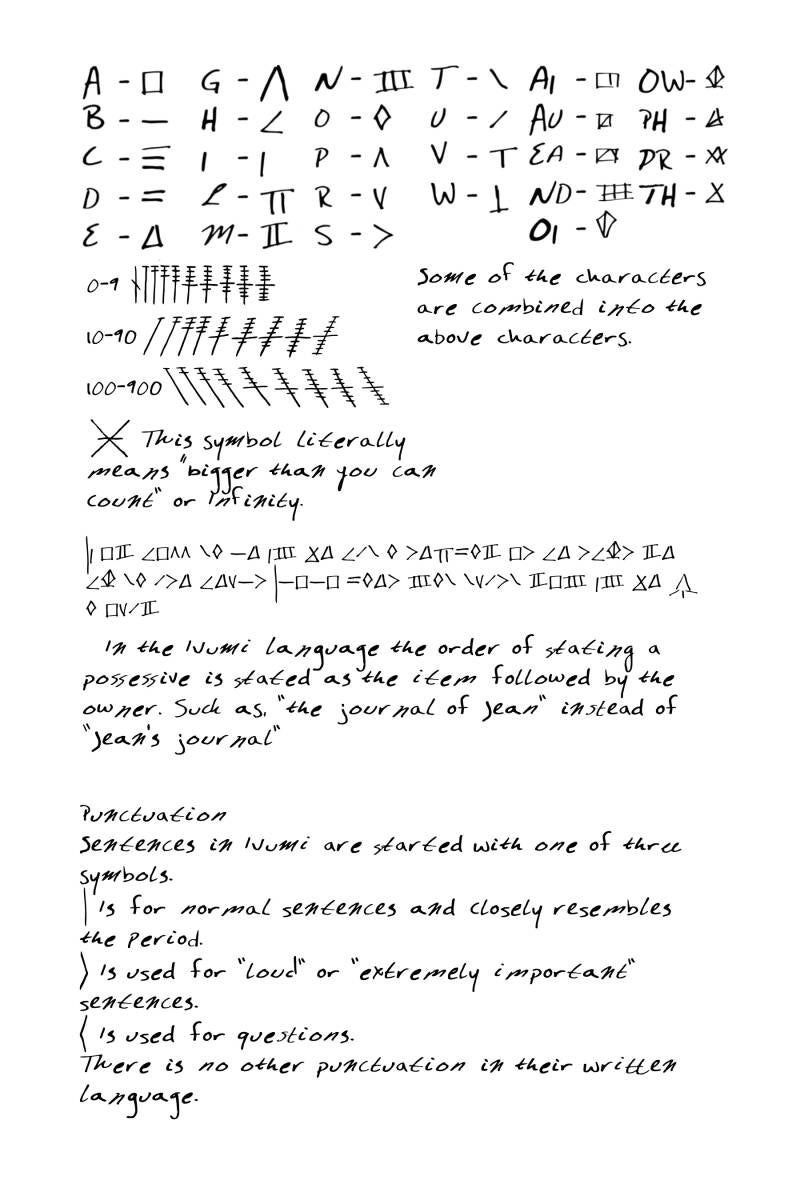 A - G - N - T - AI - OW -
B - H - O - U - AU - PH -
C - I - P - V - EA - DR -
D - L - R - W - ND - TH -
E - M - S - OI -
0-9
10-90
100-900
Some of the characters
are combined into the
above characters.
This symbol literally
means "bigger than you can
count" or infinity.
In the Numi language the order of stating a
possessive is stated as the item followed by the
owner. Such as, "the journal of Jean" instead of
"Jean's journal"
Punctuation
Sentences in Numi are started with one of three
symbols.
| is for normal sentences and closely resembles
the period.
⟩ is used for "loud" or "extremely important"
sentences.
⟨ is used for questions.
There is no other punctuation in their written
language.